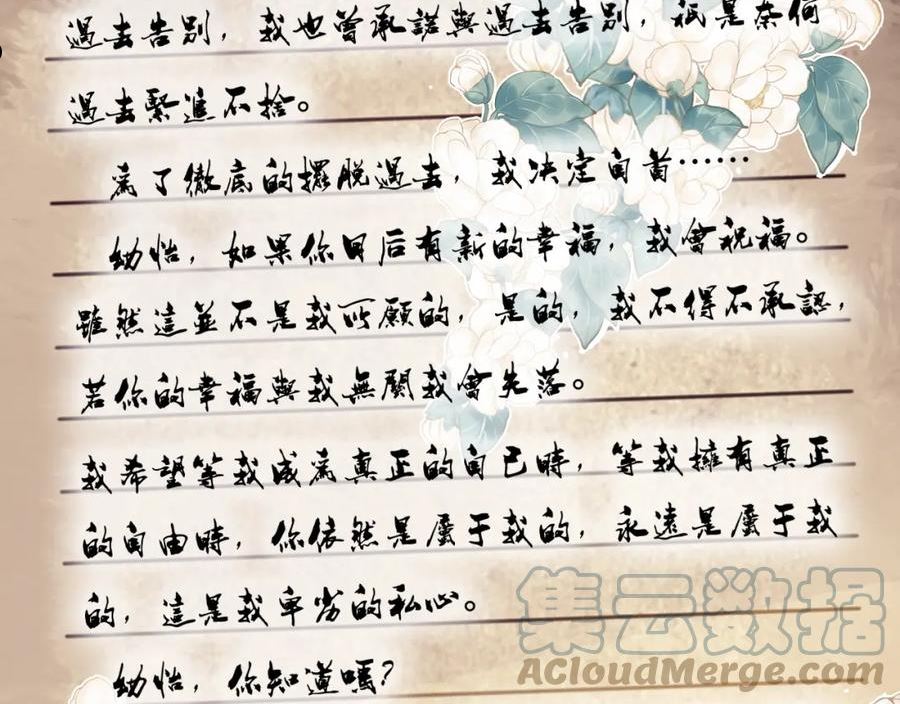 過去告別，我也曾承諾與過去告別，祇是奈何
過去緊追不捨。
爲了徹底的擺脫過去，我決定自首……
幼怡，如果你日后有新的幸福，我會祝福。
雖然這並不是我所願的，是的，我不得不承認，
若你的幸福與我無關我會失落。
我希望等我成爲真正的自己時，等我擁有真正
的自由時，你依然是屬于我的，永遠是屬于我
的，這是我卑劣的私心。
幼怡，你知道嗎？
集云数据
ACloudMerge.com